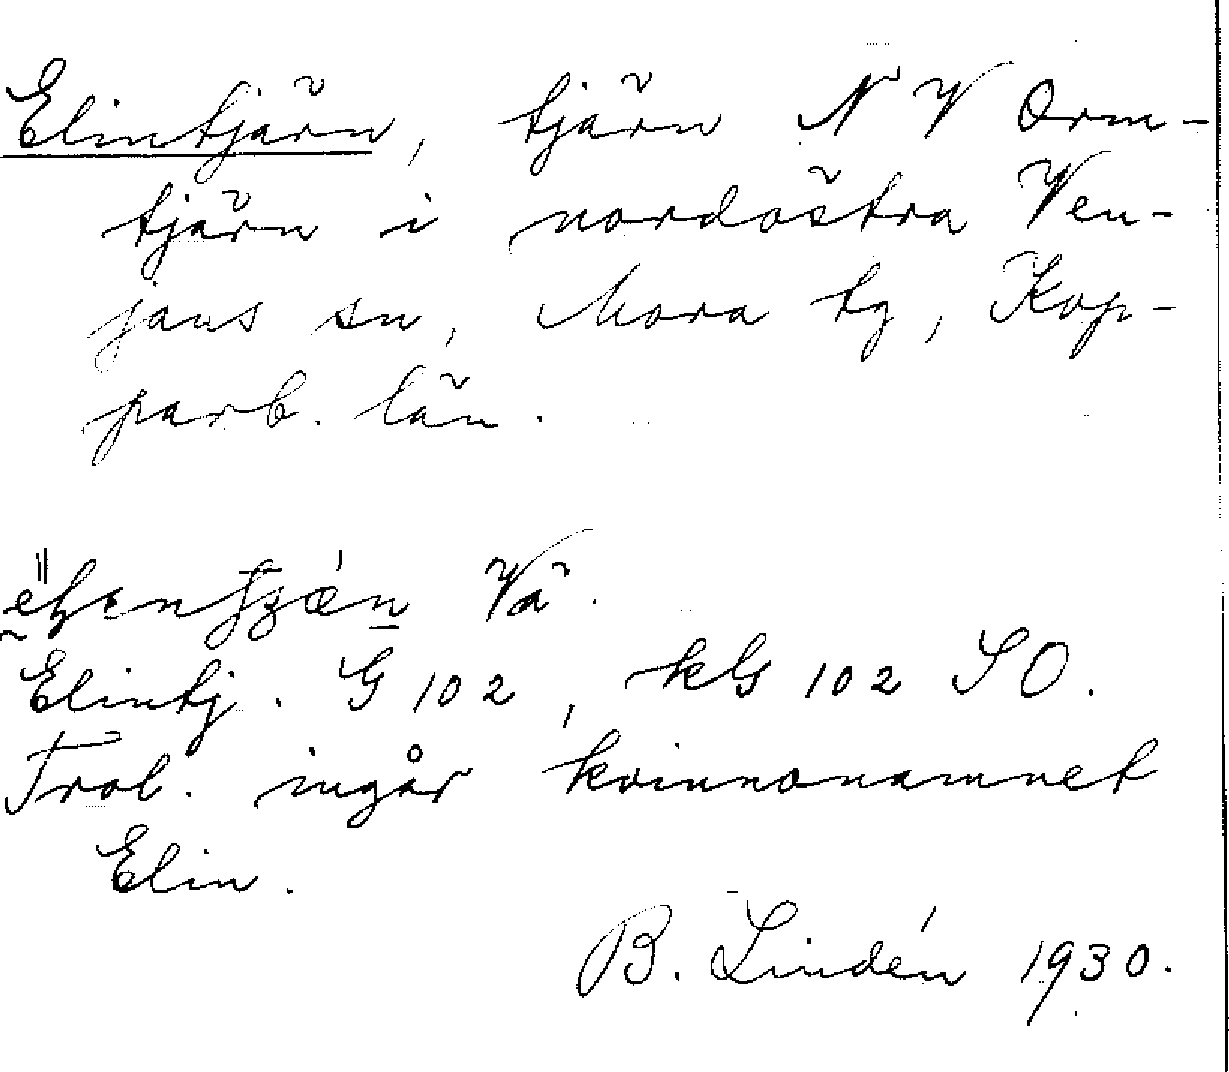 Elintjärn, tjärn N V Orm-
tjärn i nordöstra Ven-
jans sn, Mora tg, Kop-
parb. län.
Vå.
Elintj. G 102, kG 102 SO.
Trol. ingår kvinnonamnet
Elin.
B. Lindén 1930.